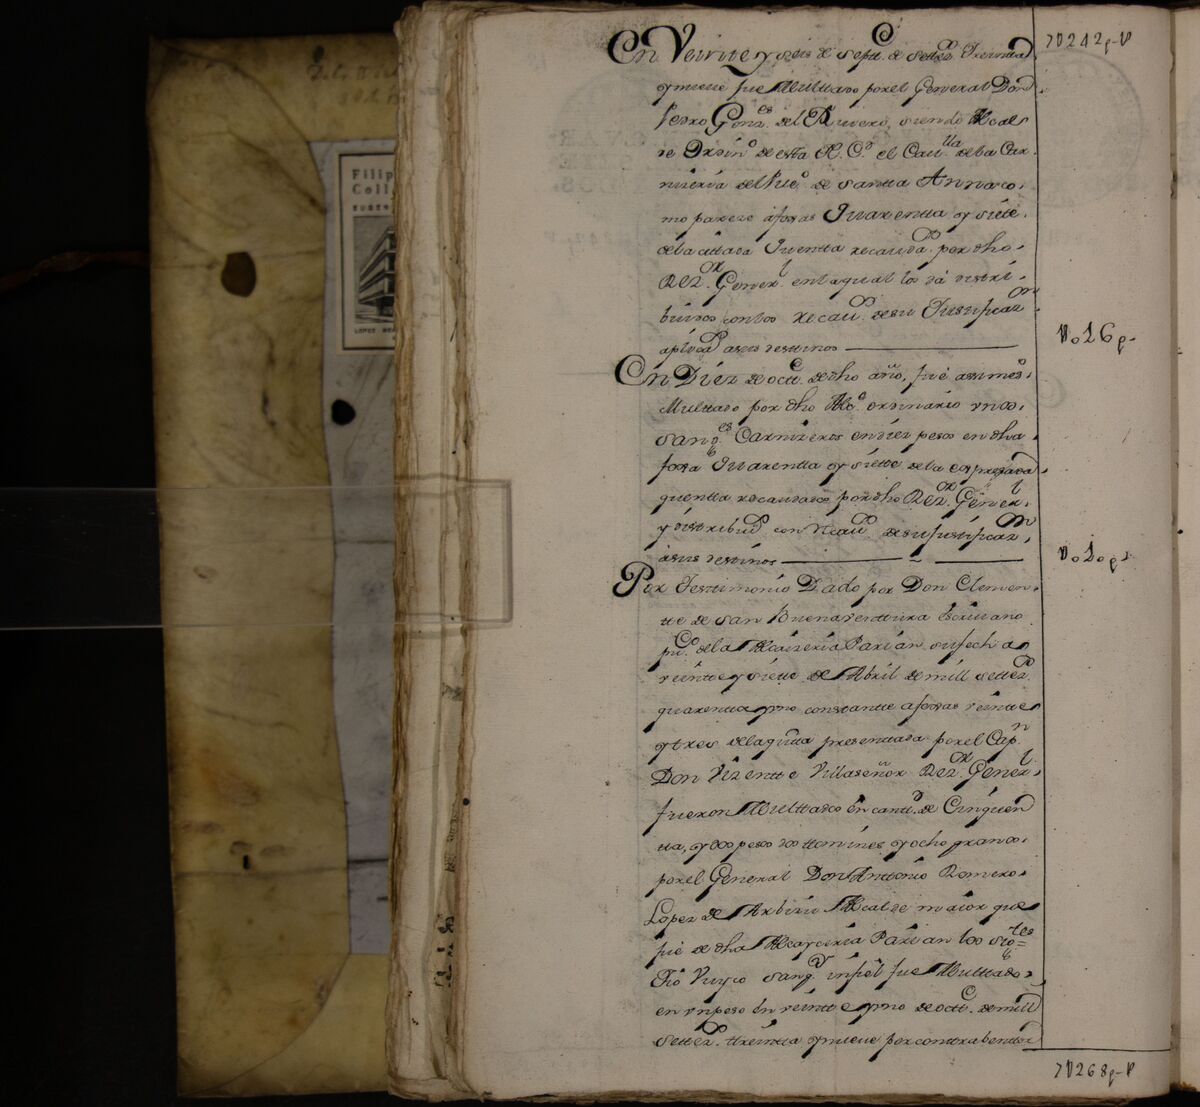 7U242p-U
En Veintte y seis de Septt.e de Settez.os Treintta
y nueve fue Multtado por el General Don
Pedro Gonz.es del Rivero, siendo Alcal
de Ordin.o de esta N. C.d el Cau.
de la Car
niseria del Pue.o de Santta Anna co
mo pareze a foxas Quarentta y siete
de la cittada Quentta recauda.do por dho
Rez.or Gener.l en la qual los dá distri
buidos con los Recau.dos de su Justificaz.on
aplicad.os a sus desttinos
U o16p.
En Diez de octt.e de dho año, fué assimes.o
Multtado por dho Alc.e ordinario unos
Sang.es Carnizeros en diez pesos en dha
foxa Quarentta y siette de la expresada
quentta recaudados por dho Rez.or Gener.l
y distribuid.os con recau.dos de su justificaz.on
a sus destinos
U o1o p.s
Por Testtimonio Dado por Don Clemen
tte de San Buenaventtura Escrivano
pu.co de la Alcaizeria Parian su fech a
veintte y siette de Abril de mill settez.os
quarentta y uno constante a foxas veintte
y tres de la q.uentta presenttada por el Cap.n
Don Vizentte Villaseñor Rez.or Gener.l
fueron Multtados en cantt.d de Cinquen
tta, y dos pesos dos ttomines y ocho granos
por el General Don Anttonio Romero
Lopez de Arbizu Alcalde maior que
fué de dha Alcayzeria Parian los Sig.tes
Sang.y infiel fue Multtado
en un peso en veintte y uno de octt.e de mill
settez.os ttreintta y nueve por contrabenttor
7U268p-U
Filip
Coll
LOPEZ